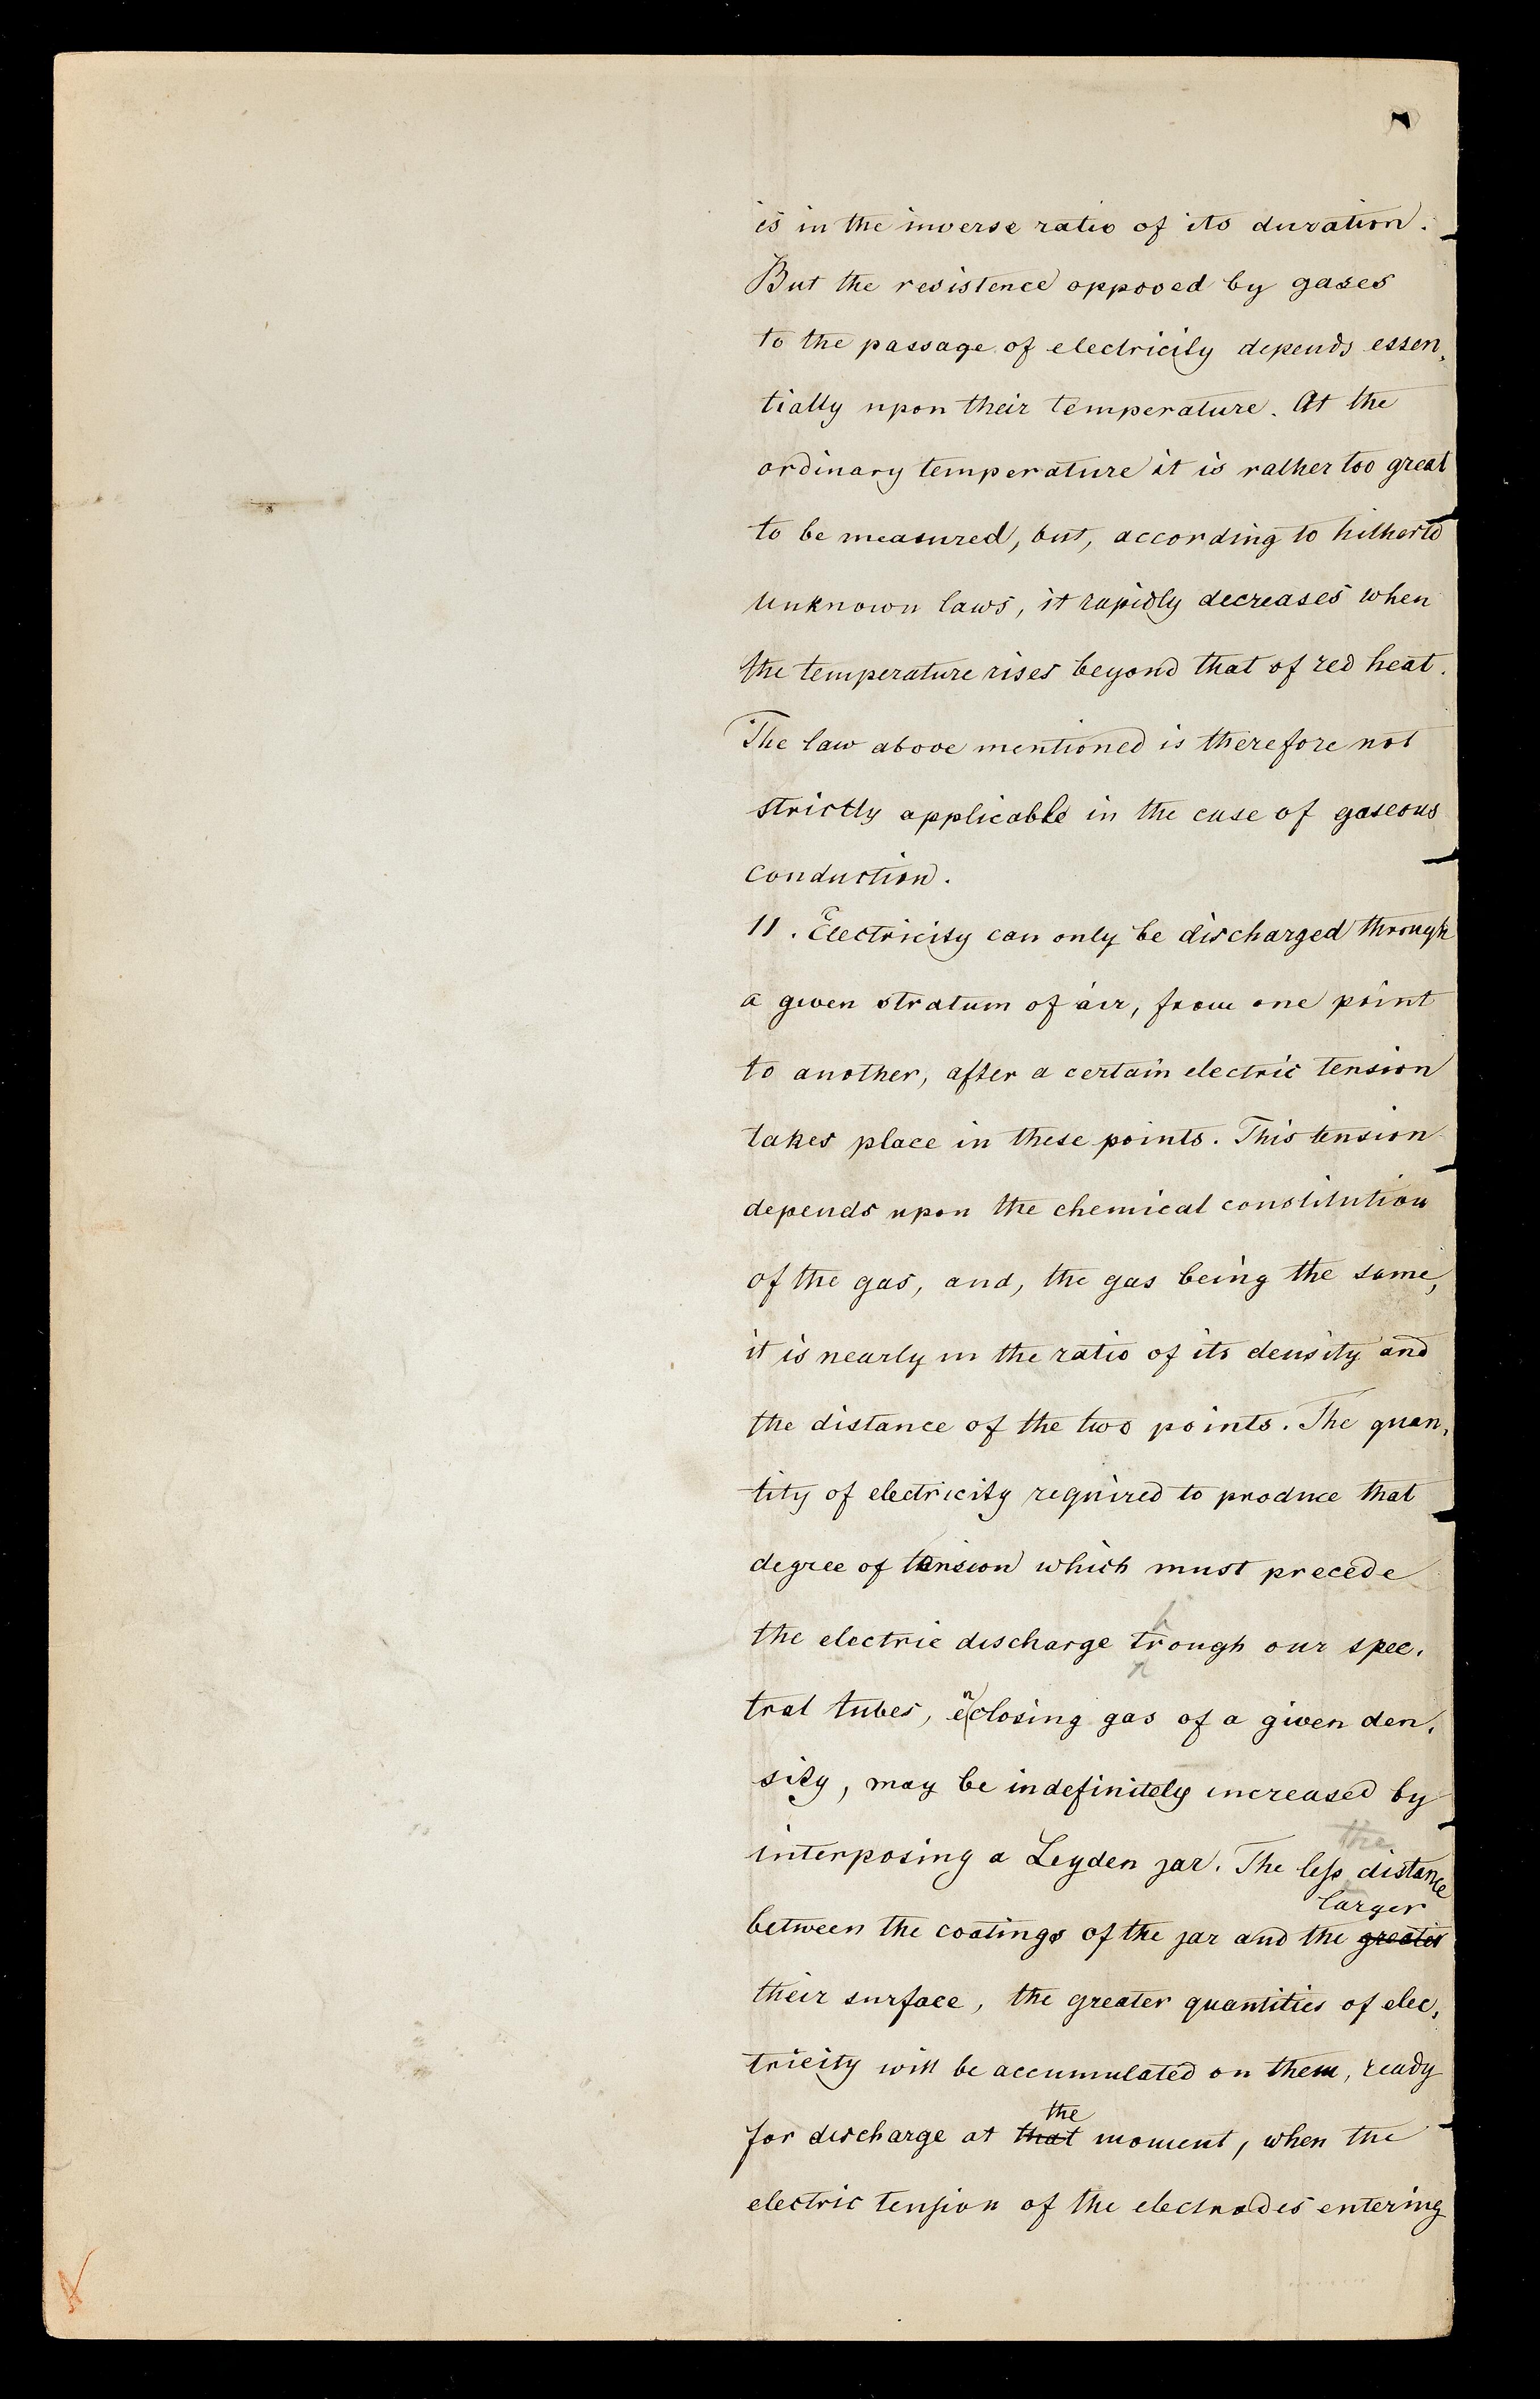 is in the inverse ratio of its duration.
But the resistence opposed by gases
to the passage of electricity depends essen,
tially upon their temperature. At the
ordinary temperature it is rather too great
to be measured, but, according to hitherto
unknown laws, it rapidly decreases when
the temperature rises beyond that of red heat.
The law above mentioned is therefore not
strictly applicable in the case of gaseous
conduction.
11. Electricity can only be discharged through
a given stratum of air, from one point
to another, after a certain electric tension
takes place in these points. This tension
depends upon the chemical constitution
of the gas, and, the gas being the same,
it is nearly in the ratio of its density and
the distance of the two points. The quan,
tity of electricity required to produce that
degree of tension which must precede
h
the electric discharge trough our spec,
tral tubes, enclosing gas of a given den,
sity, may be indefinitely increased by
the
interposing a Leyden jar. The less distance
larger
between the coatings of the jar and the greater
their surface, the greater quantities of elec,
tricity will be accumulated on them, ready
the
for discharge at that moment, when the
electric tension of the electrodes entering